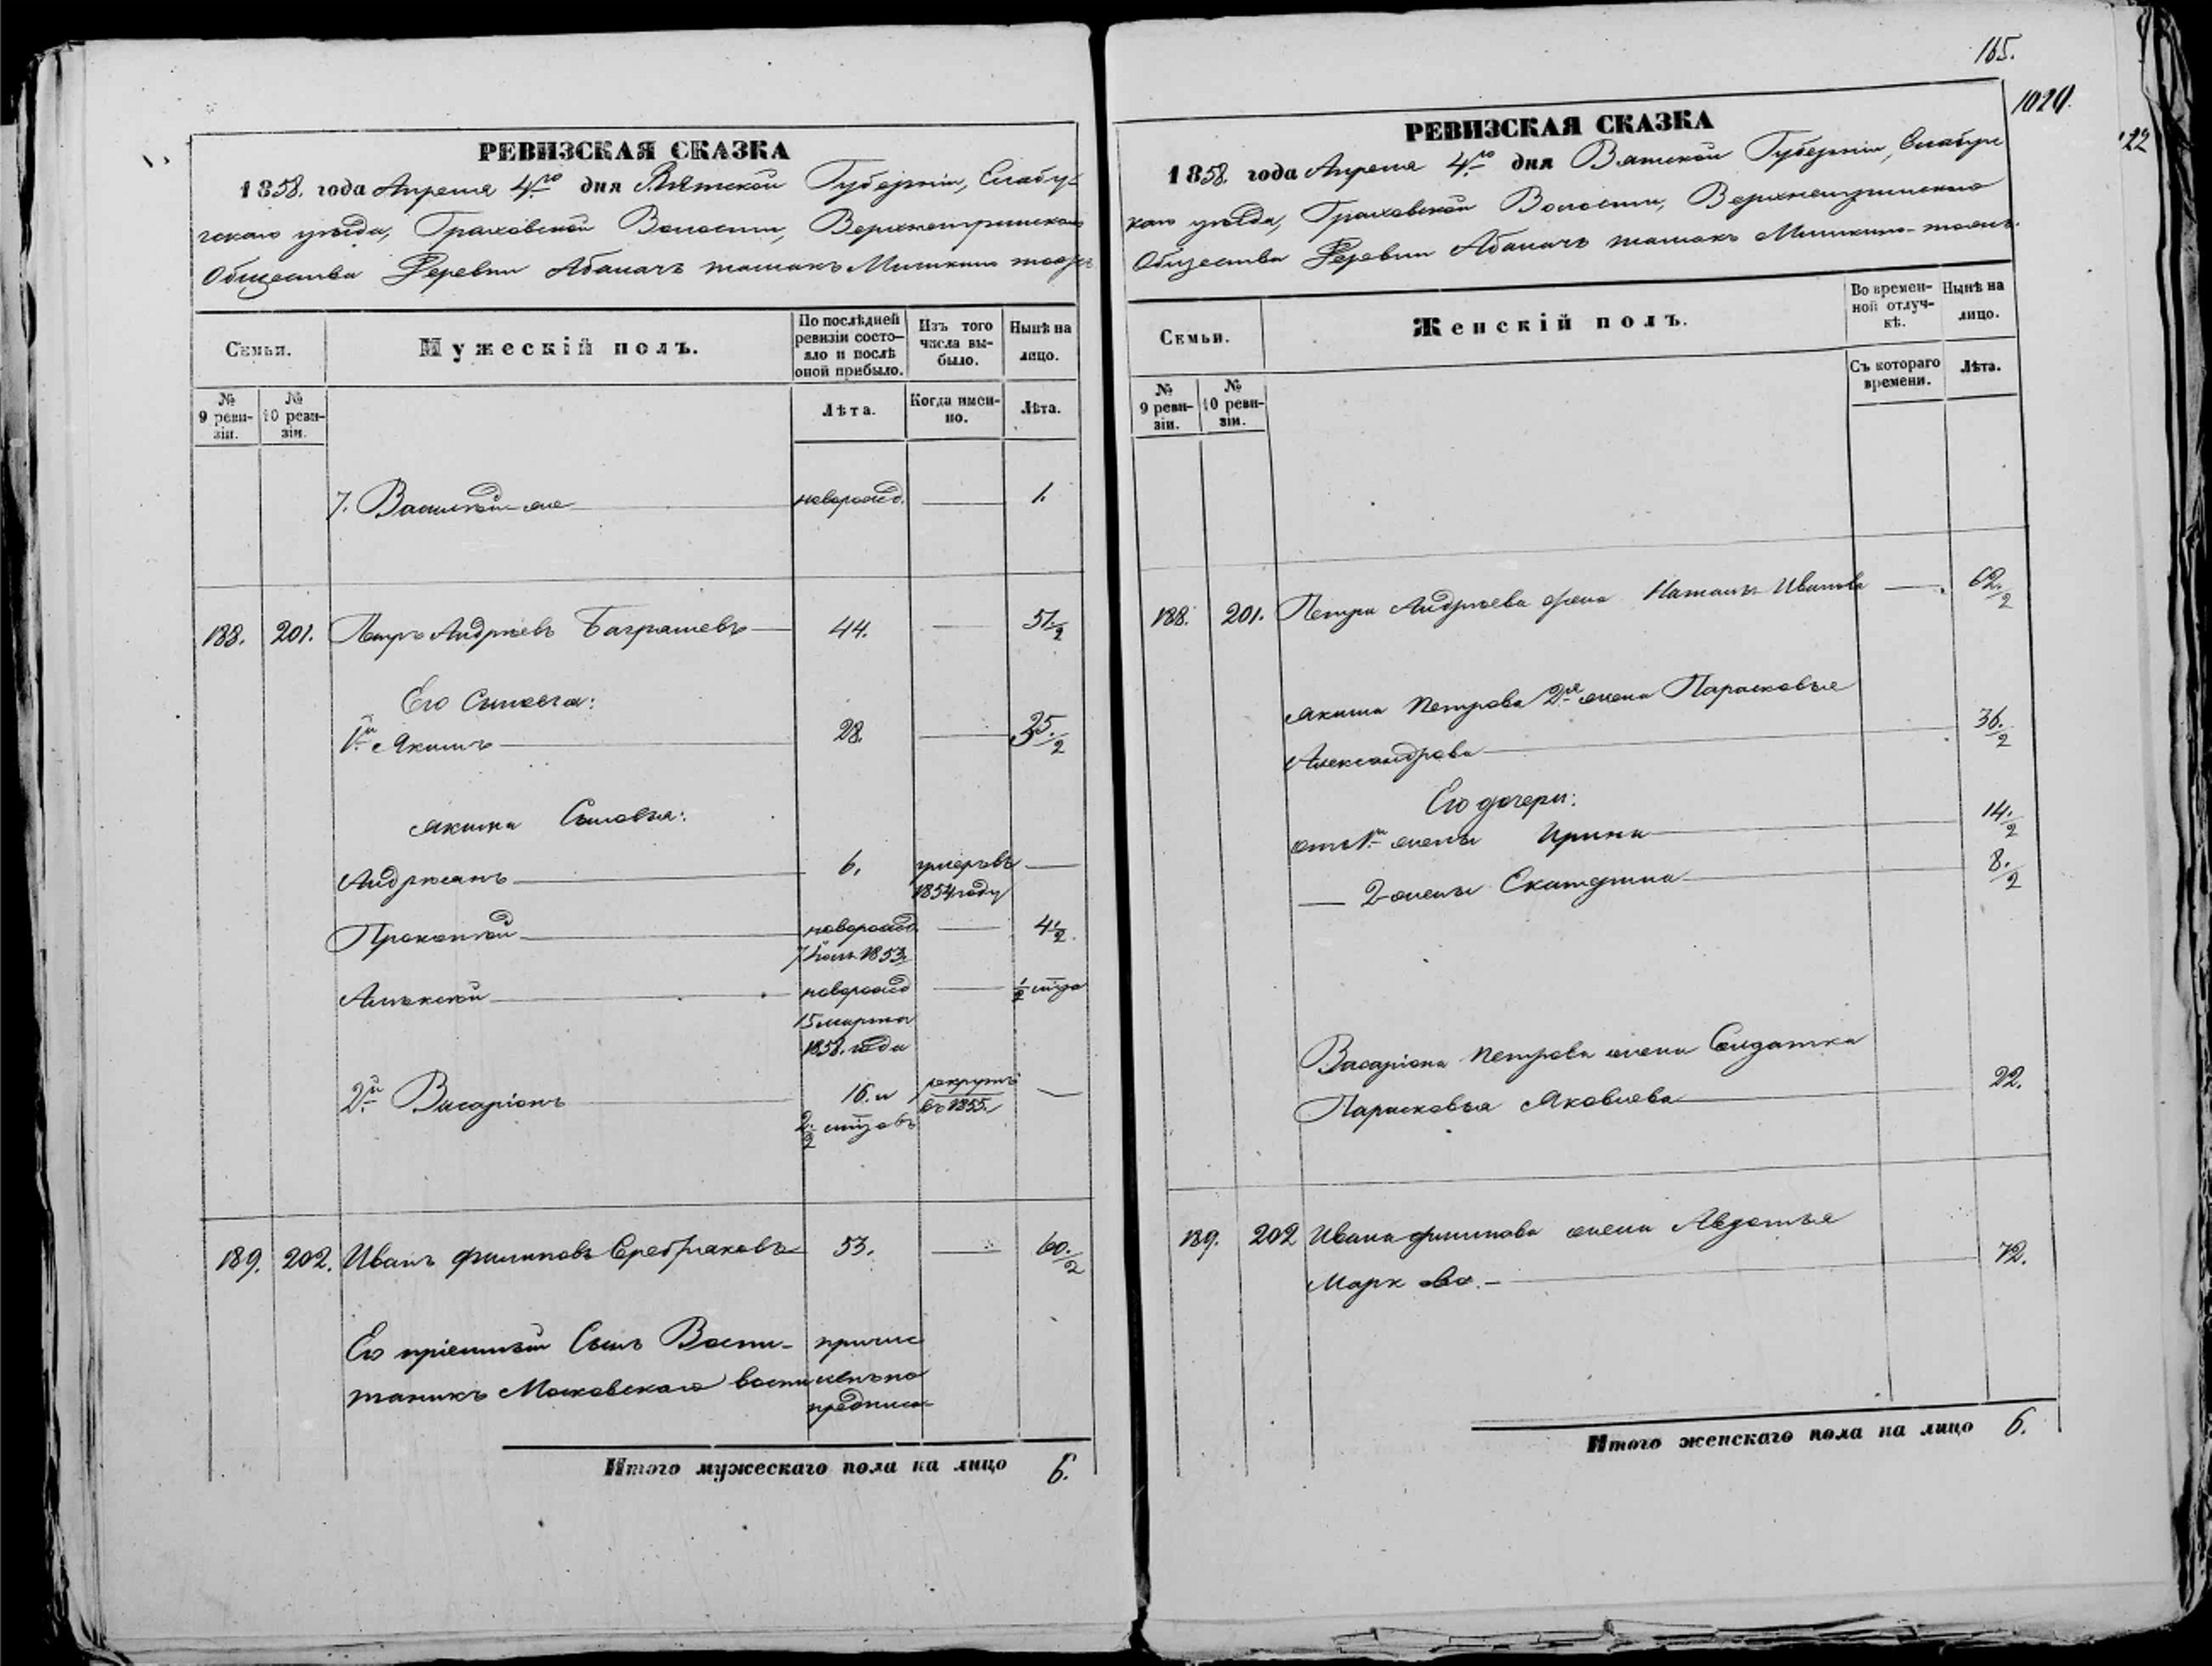 РЕВИЗСКАЯ СКАЗКА
1858. года Апреля 4го дня Вятской Губерніи, Елабу-
гскаго уѣзда, Граховской Волости,
Общества Деревни Абалачъ тожъ
Семьи.
Мужескій полъ.
По послѣдней ревизіи состо-яло и послѣ оной прибыло.
Изъ того числа вы-было.
Нынѣ на лицо.
№ 9 реви-зіи.
№ 10 реви-зіи.
Лѣта.
Когда имен-но.
Лѣта.
7. Василій оне новорожд. 1.
188. 201. Петръ Андрѣевъ Баграшевъ 44. 51/2
Его Сыновья:
1й Якимъ 28. 35./2
Якима Сыновья:
Андреянъ 6. умеръ въ
1854 году
Прокопій новорожд. 4 1/2
1853
Алексѣй новорожд 1/2 мѣс
15 марта
1858. года
2й Висаріонъ 16. и рекрутъ
въ 1855.
189. 202. Иванъ Филиповъ Серебряковъ 53. 60./2
Его пріемный Сынъ Воспи- причис
танникъ Московскаго воспи ленъ по
предписа-
Итого мужескаго пола на лицо 6.
165.
1029.
22
РЕВИЗСКАЯ СКАЗКА
1858. года Апреля 4го дня Вятской Губерніи, Елабуг
скаго уѣзда, Граховской Волости,
Общества Деревни Абалачъ тожъ
Семьи.
Женскій полъ.
Во времен-ной отлуч-кѣ.
Нынѣ на лицо.
№ 9 реви-зіи.
№ 10 реви-зіи.
Съ котораго времени.
Лѣта.
188. 201. Петра Андрѣева жена Наталья Иванова 62./2
Якима Петрова 2я жена Парасковья
Александрова 36./2
Его дочери:
отъ 1й жены Ирина 14./2
— 2 жены Екатерина 8./2
Висаріона Петрова жена Солдатка
Парасковья Яковлева 22.
189. 202 Ивана Филипова жена Авдотья
Маркова. 72.
Итого женскаго пола на лицо 6.